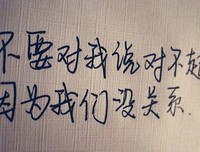 不要对我说对不起
因为我们没关系.